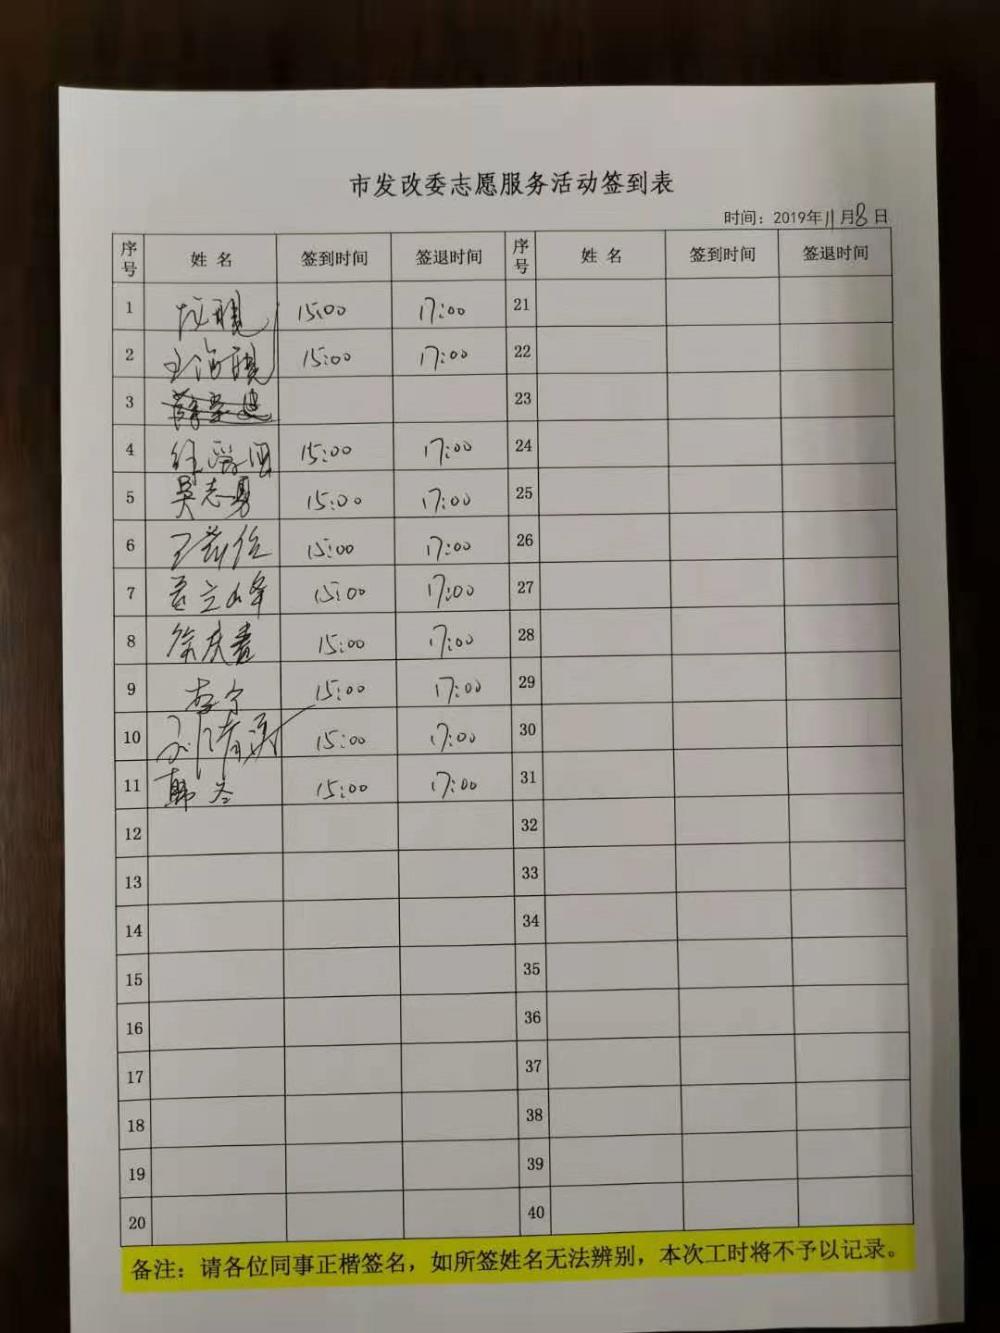 市发改委志愿服务活动签到表
时间：2019年11月8日
序号 姓名 签到时间 签退时间 序号 姓名 签到时间 签退时间
1 15:00 17:00 21
2 王海 15:00 17:00 22
3 23
4 徐爱国 15:00 17:00 24
5 吴志勇 15:00 17:00 25
6 王 15:00 17:00 26
7 立峰 15:00 17:00 27
8 徐庆 15:00 17:00 28
9 李宁 15:00 17:00 29
10 刘 15:00 17:00 30
11 韩冬 15:00 17:00 31
12 32
13 33
14 34
15 35
16 36
17 37
18 38
19 39
20 40
备注：请各位同事正楷签名，如所签姓名无法辨别，本次工时将不予以记录。